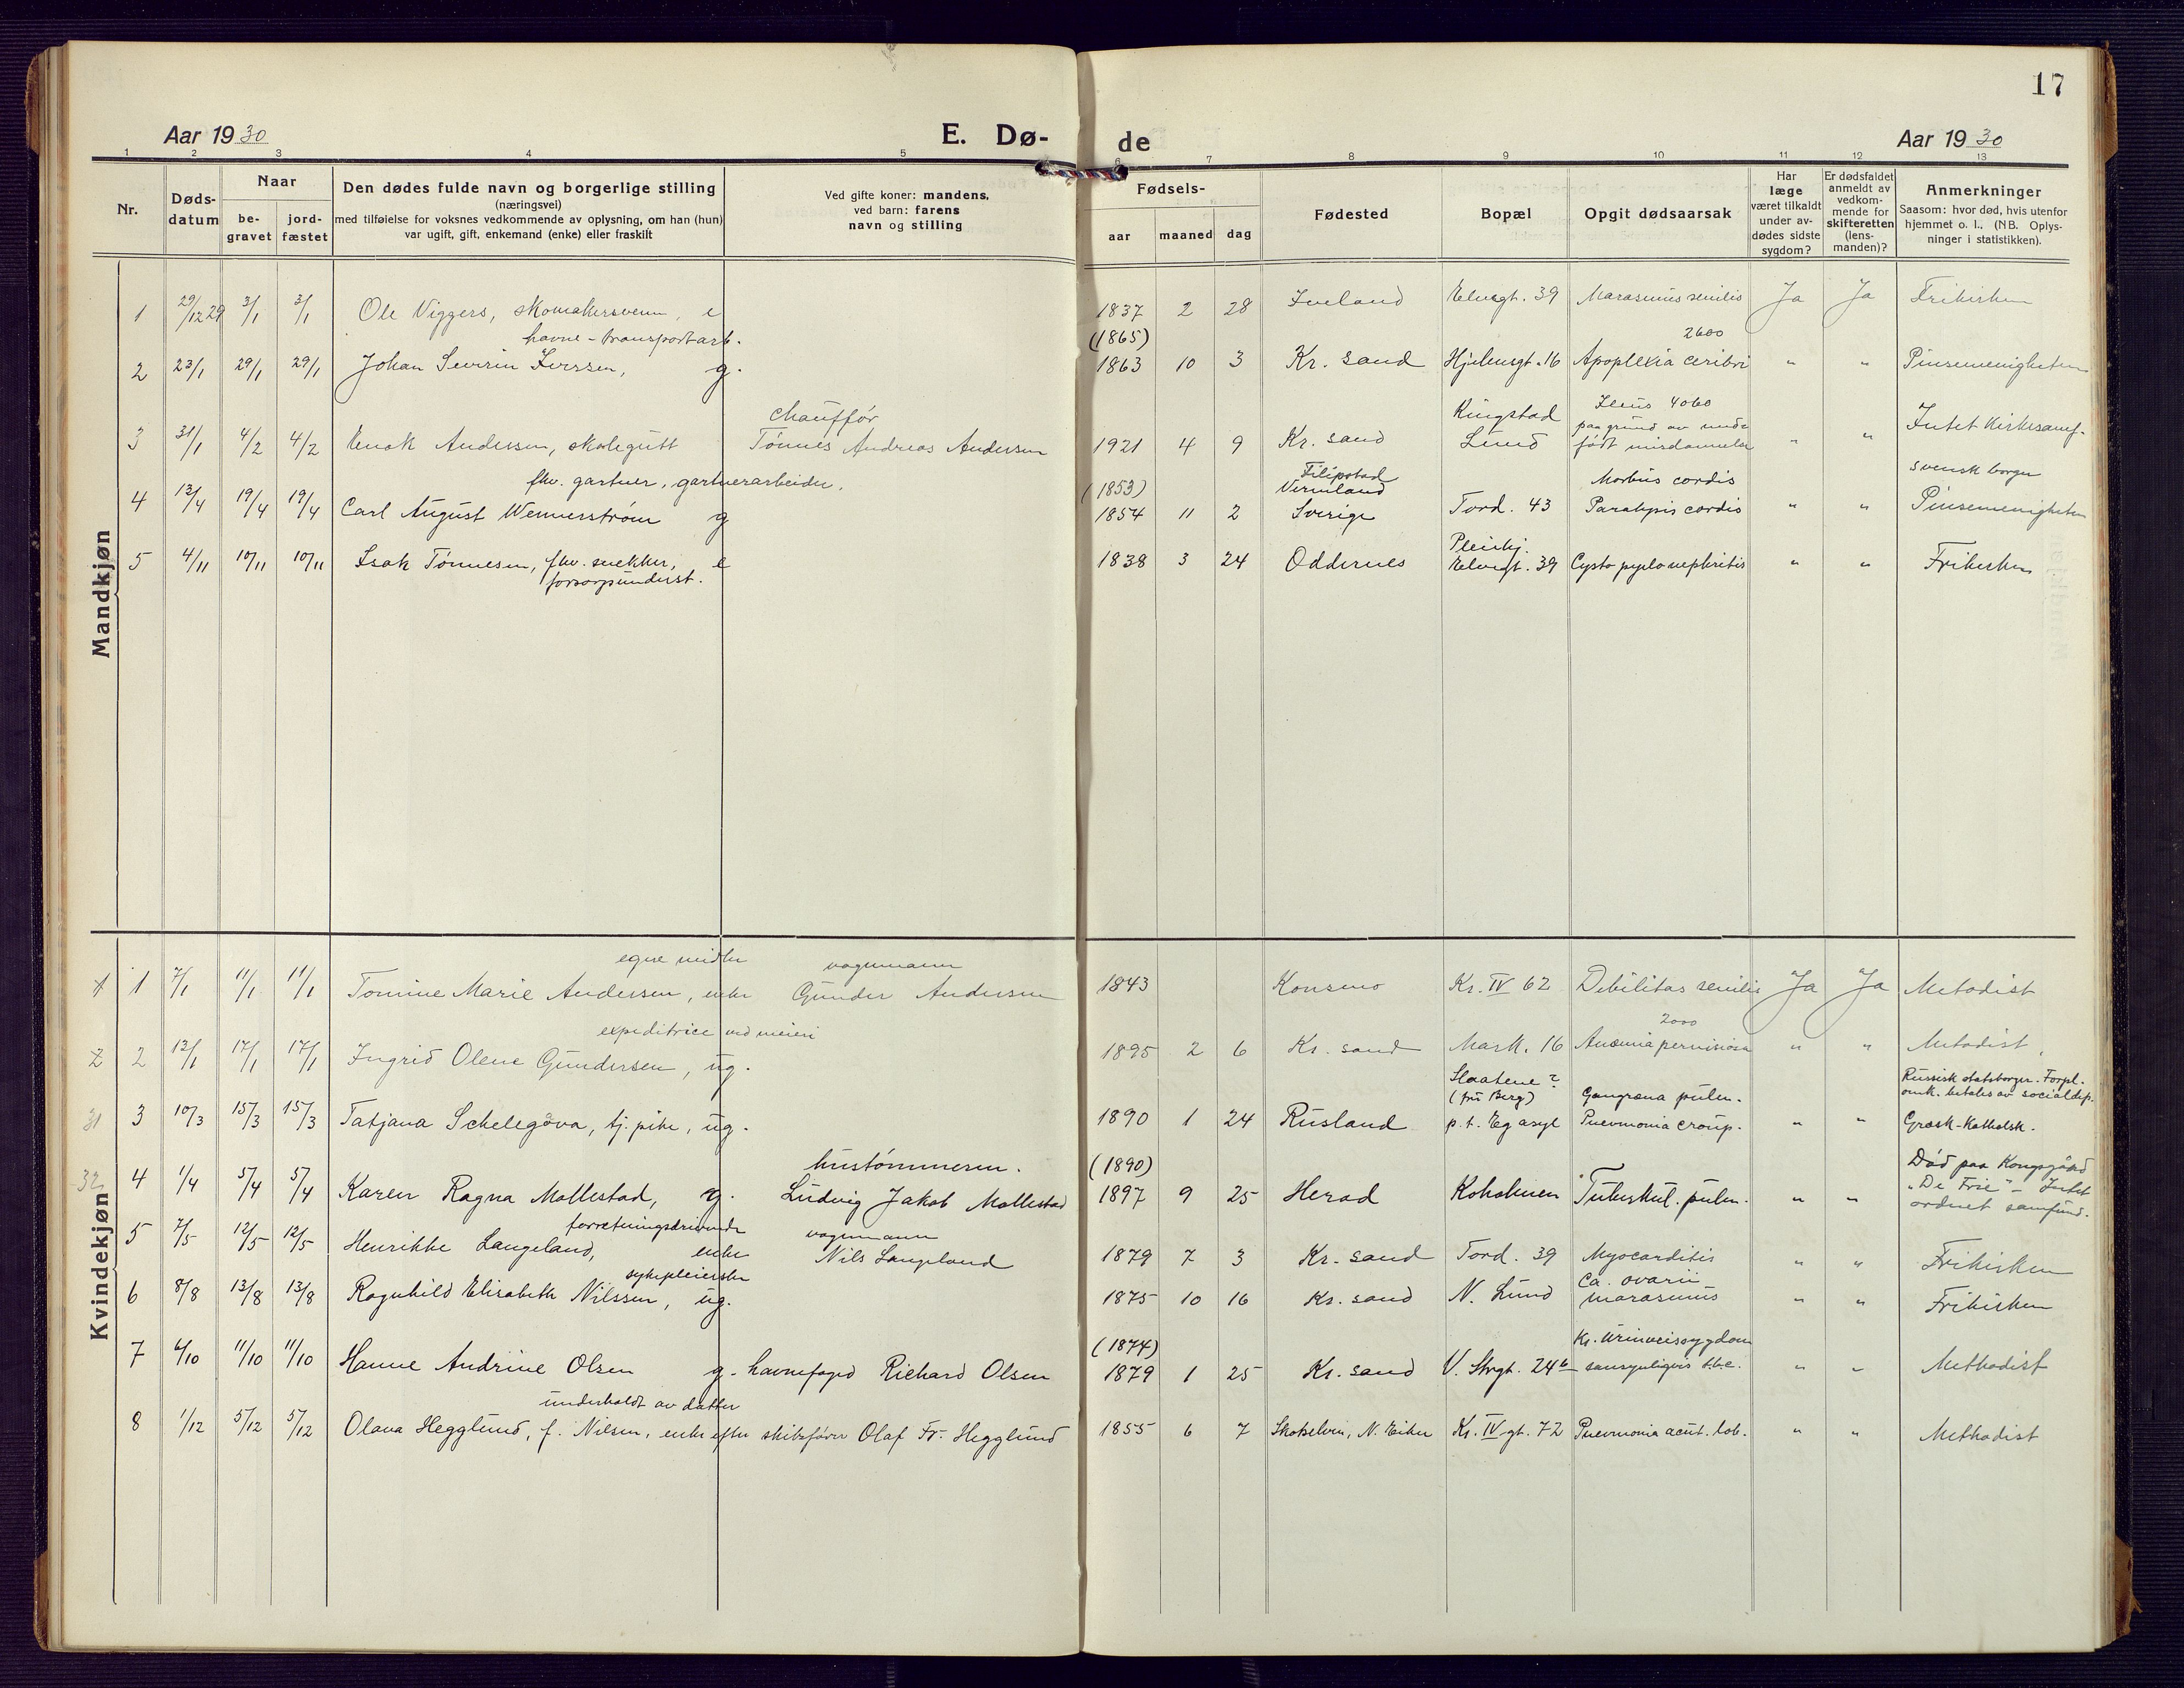 17
Aar 1930 E. Dø- de Aar 1930
1 2 3 4 5 6 7 8 9 10 11 12 13
Nr.
Døds-
datum
Naar
be-
gravet
jord-
fæstet
Den dødes fulde navn og borgerlige stilling
(næringsvei)
med tilføielse for voksnes vedkommende av oplysning, om han (hun)
var ugift, gift, enkemand (enke) eller fraskilt
Ved gifte koner: mandens,
ved barn: farens
navn og stilling
Fødsels-
aar maaned dag
Fødested
Bopæl
Opgit dødsaarsak
Har
læge
været tilkaldt
under av-
dødes sidste
sygdom?
Er dødsfaldet
anmeldt av
vedkom-
mende for
skifteretten
(lens-
manden)?
Anmerkninger
Saasom: hvor død, hvis utenfor
hjemmet o. l., (NB. Oplys-
ninger i statistikken).
Mandkjøn
1 29/12 29 3/1 3/1 Ole Viggers, skomakersvenn, e 1837 2 28 Iveland Elvegt. 39 Marasmus senilis Ja Ja Frikirken
havne-transportarb. (1865) 2600
2 23/1 29/1 29/1 Johan Severin Iversen, g. 1863 10 3 Kr. sand Hjelmsgt. 16 Apoplexia ceribri " " Pinsemenigheten
chauffør Kingstad Ileus 4060
paa grund av
3 31/1 4/2 4/2 Enok Andersen, skolegutt Tønnes Andreas Andersen 1921 4 9 Kr. sand Lund født misdannelse " " Intet Kirkesamf.
fhv. gartner, gartnerarbeider. (1853) Filipstad Vermland Morbus cordis svensk borger
4 13/4 19/4 19/4 Carl August Wennerstrøm g 1854 11 2 Sverige Tord. 43 Paralysis cordis " " Pinsemenigheten
Pleiehj.
5 4/11 10/11 10/11 Isak Tønnesen, fhv. snekker, e 1838 3 24 Oddernes Elvegt. 39 Cysto pyelonephritis " " Frikirken
forsorgsunderst.
Kvindekjøn
egne midler vognmann
1 1 7/1 11/1 11/1 Tomine Marie Andersen, enke Gunder Andersen 1843 Konsmo Kr. IV 62 Debilitas senilis Ja Ja Metodist
expeditrice ved meieri 2000
2 2 13/1 17/1 17/1 Ingrid Olene Gundersen, ug. 1895 2 6 Kr. sand Mark. 16 Anæmia perniciosa " " Metodist
Slaatene? (fru Berg) Gangræna pulm. Russisk statsborger. Forpl.
omk. betales av socialdep.
31 3 10/3 15/3 15/3 Tatjana Schelegova, tj. pike, ug. 1890 1 24 Rusland p.t. Eg asyl Pnevmonia croup. " " Græsk-Katholsk.
hustømmeren. (1890) Død paa Kongsgård
32 4 1/4 5/4 5/4 Karen Ragna Mollestad, g. Ludvig Jakob Mollestad 1897 9 25 Herad Kokolmen Tuberkul. pulm. " " "De Frie" - Intet
ordnet samfund.
forretningsdrivende vognmann
5 7/5 12/5 12/5 Henrikke Langeland, enke Nils Langeland 1879 7 3 Kr. sand Tord. 39 Myocarditis " " Frikirken
sykepleierske Ca. ovarii
6 8/8 13/8 13/8 Ragnhild Elisabeth Nilssen, ug. 1875 10 16 Kr. sand N. Lund marasmus " " Frikirken
(1874) Kr. Urinveissygdom
7 6/10 11/10 11/10 Hanne Andrine Olsen g. havnefoged Richard Olsen 1879 1 25 Kr. sand V. Strgt. 24b sansynligvis tbc. " " Methodist
underholdt av datter
8 1/12 5/12 5/12 Olava Hegglund, f. Nilsen, enke efter skibsfører Olaf Fr. Hegglund 1855 6 7 Skotselven, N. Eiker Kr. IV gt. 72 Pnevmonia acut. lob. " " Methodist